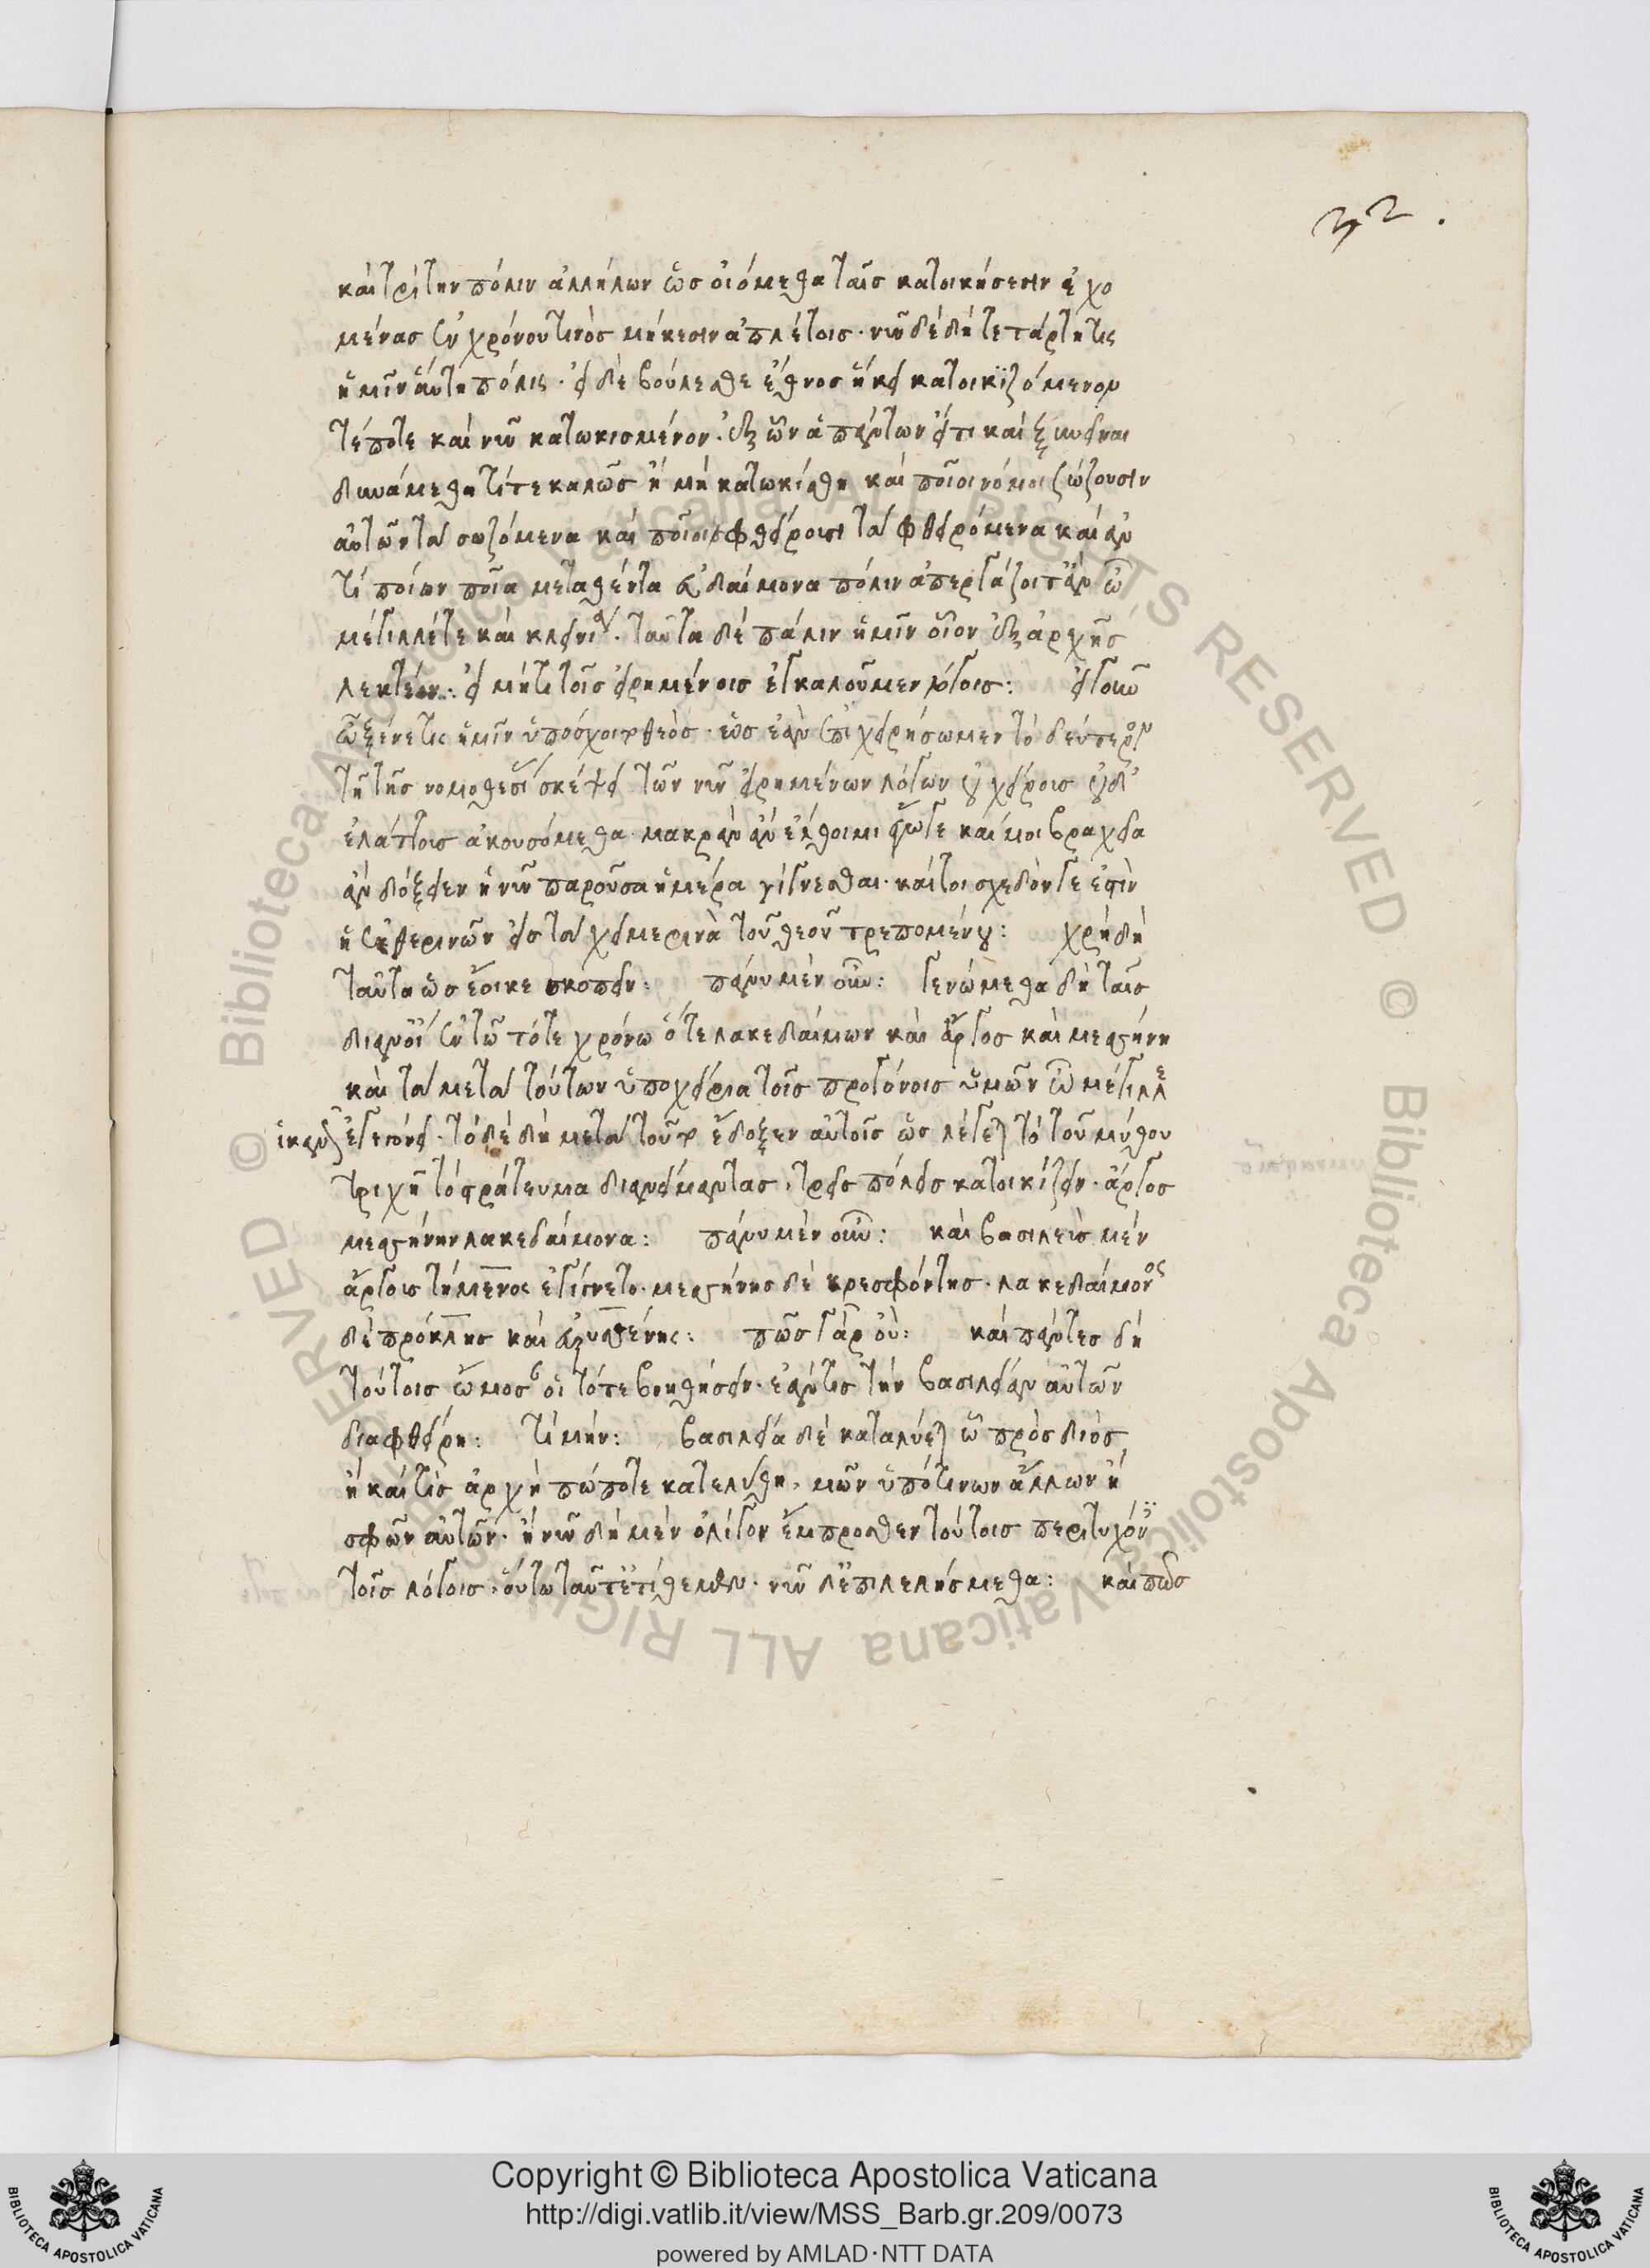 32.
καὶ τρίτην πόλιν ἀλλήλων ὡς οἰόμεθα ταῖς κατοικήσεσιν ἐχο
μένας ἐν χρόνου τινὸς μήκεσιν ἀπλέτοις· νῦν δὲ δὴ τετάρτη τις
ἡμῖν αὕτη πόλις· εἰ δὲ βούλεσθε ἔθνος ἥκει κατοικϊζόμενόν
τέ ποτε καὶ νῦν κατωκισμένον· ἐξ ὧν ἁπάντων εἴ τι καὶ ξυνεῖναι
δυνάμεθα τί τε καλῶς ἢ μὴ κατωκίσθη καὶ ποῖοι νόμοι σώζουσιν
αὐτῶν τὰ σωζόμενα καὶ ποῖοι φθείρουσι τὰ φθειρόμενα καὶ ἀν
τὶ ποίων ποῖα μετατεθέντα εὐδαίμονα πόλιν ἀπεργάζοιτ' ἂν ὦ
μέγιλλέ τε καὶ κλεινία· ταῦτα δὲ πάλιν ἡμῖν οἷον ἐξ ἀρχῆς
λεκτέον: εἰ μή τι τοῖς εἰρημένοις ἐγκαλοῦμεν λόγοις: εἰ γοῦν
ὦ ξένε τις ἡμῖν ὑπόσχοιτο θεὸς· ὡς ἐὰν ἐπιχειρήσωμεν τὸ δεύτερον
τῇ τῆς νομοθεσίας σκέψει τῶν νῦν εἰρημένων λόγων οὐ χείρους οὐδ'
ἐλάττους ἀκουσόμεθα· μακρὰν ἂν ἔλθοιμι ἔγωγε καί μοι βραχεῖα
ἂν δόξειεν ἡ νῦν παροῦσα ἡμέρα γίγνεσθαι· καίτοι σχεδόν γε ἐστὶν
ἡ ἐκ θερινῶν εἰς τὰ χειμερινὰ τοῦ θεοῦ τρεπομένου: χρὴ δὴ
ταῦτα ὡς ἔοικε σκοπεῖν: πάνυ μὲν οὖν: γενώμεθα δὴ ταῖς
διανοίαις ἐν τῷ τότε χρόνῳ ὅτε λακεδαίμων καὶ ἄργος καὶ μεσσήνη
καὶ τὰ μετὰ τούτων ὑποχείρια τοῖς προγόνοις ὑμῶν ὦ μέγιλλε
ἱκανῶς ἐγεγόνει· τὸ δὲ δὴ μετὰ τοῦτο ἔδοξεν αὐτοῖς ὥς λέγεται τὸ τοῦ μύθου
τριχῇ τὸ στράτευμα διανείμαντας· τρεῖς πόλεις κατοικίζειν· ἄργος
μεσσήνην λακεδαίμονα: πάνυ μὲν οὖν: καὶ βασιλεὺς μὲν
ἄργους τήμενος ἐγίγνετο· μεσσήνης δὲ κρεσφόντης· λακεδαίμονος
δὲ πρόκλης καὶ εὐρυσθένης: πῶς γὰρ οὔ: καὶ πάντες δὴ
τούτοις ὤμοσαν οἱ τότε βοηθήσειν· ἐάν τις τὴν βασιλείαν αὐτῶν
διαφθείρῃ: τί μήν: βασιλεία δὲ καταλύεται ὦ πρὸς διὸς
ἢ καί τις ἀρχὴ πώποτε κατελύθη· μῶν ὑπό τινων ἄλλων ἢ
σφῶν αὐτῶν· ἢ νῦν δὴ μὲν ὀλίγον ἔμπροσθεν τούτοις περιτυχόντες
τοῖς λόγοις· οὕτω ταῦτ' ἐτίθεμεν· νῦν δ' ἐπιλελήσμεθα: καὶ πῶς
Copyright © Biblioteca Apostolica Vaticana
http://digi.vatlib.it/view/MSS_Barb.gr.209/0073
powered by AMLAD·NTT DATA
BIBLIOTECA APOSTOLICA VATICANA
BIBLIOTECA APOSTOLICA VATICANA
© Biblioteca Apostolica Vaticana ALL RIGHTS RESERVED © Biblioteca Apostolica Vaticana ALL RIGHTS RESERVED